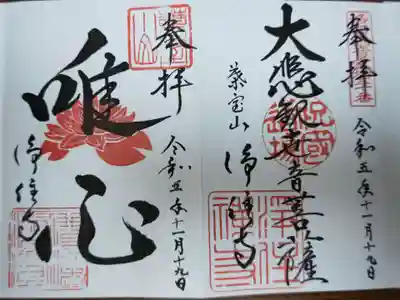 奉拝
大悲観世音菩薩
葉室山
浄住寺
令和五年十一月十九日
奉拝
唯心
浄住寺
令和五年十一月十九日